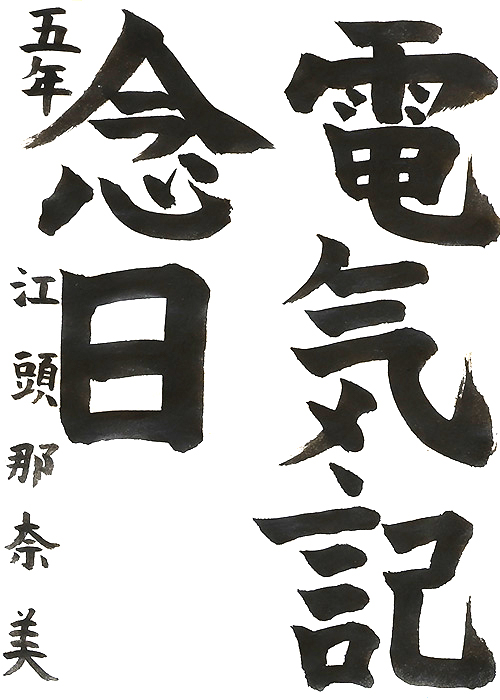 電気記
念日
五年 江頭那奈美